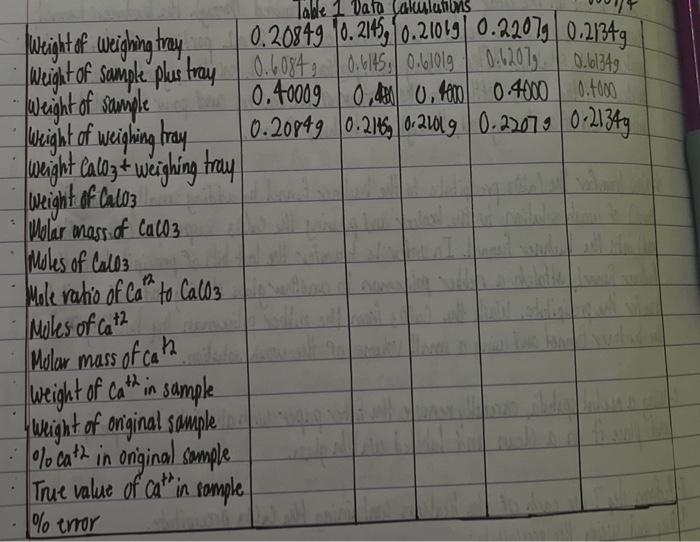 Table 1 Data Calculations
Weight of weighing tray 0.2084g 0.2145g 0.2101g 0.2207g 0.2134g
Weight of sample plus tray 0.6084g 0.6145g 0.6101g 0.6207g 0.6134g
Weight of sample 0.4000g 0.400 0.4000 0.4000 0.4000
Weight of weighing tray 0.2084g 0.2145g 0.2101g 0.2207g 0.2134g
Weight CaCO3 + weighing tray
Weight of CaCO3
Molar mass of CaCO3
Moles of CaCO3
Mole ratio of Ca+2 to CaCO3
Moles of Ca+2
Molar mass of Ca+2
Weight of Ca+2 in sample
Weight of original sample
% Ca+2 in original sample
True value of Ca+2 in sample
% error